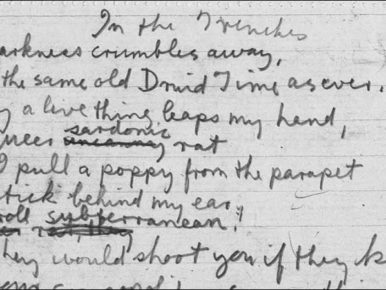 In the Trenches
arkness crumbles away,
the same old Druid Time as ever.
y a live thing leaps my hand,
sardonic
ueer uncanny rat
I pull a poppy from the parapet
tick behind my ear,
roll subterranean,
hey would shoot you if they k